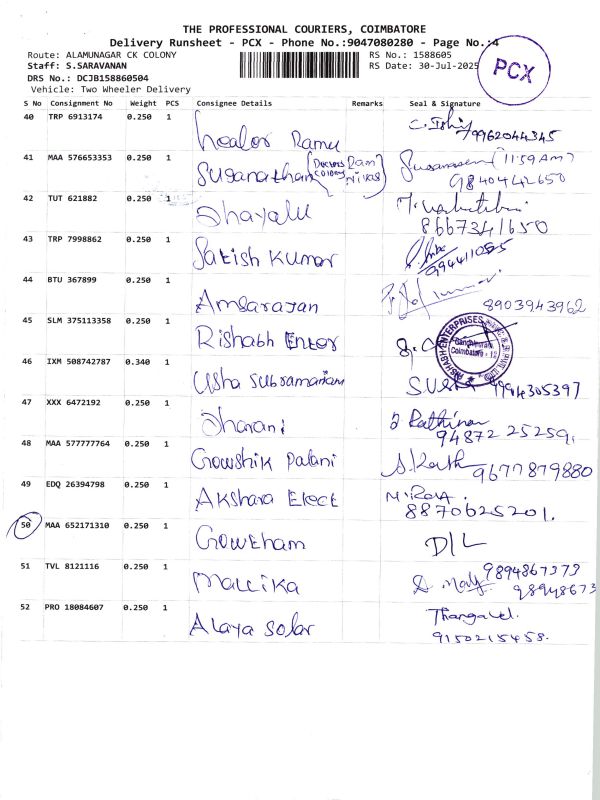 THE PROFESSIONAL COURIERS, COIMBATORE
Delivery Runsheet - PCX - Phone No.:9047080280 - Page No.:4
Route: ALAMUNAGAR CK COLONY
RS No.: 1588605
Staff: S.SARAVANAN
RS Date: 30-Jul-2025
PCX
DRS No.: DCJB158860504
Vehicle: Two Wheeler Delivery
S No Consignment No Weight PCS Consignee Details Remarks Seal & Signature
40 TRP 6913174 0.250 1
Healer Ramu 9962044345
41 MAA 576653353 0.250 1
Suganathan (Doctors Colony Ram Nivas) (11:59 AM)
9840442650
42 TUT 621882 0.250 1
Dhayalu
8667341650
43 TRP 7998862 0.250 1
Satish Kumar
44 BTU 367899 0.250 1
Amsarajan 8903943962
45 SLM 375113358 0.250 1
Rishabh Enter
RISHABH ENTERPRISES
Gandhipuram,
Coimbatore - 12
46 IXM 508742787 0.340 1
Usha Subramaniam 9994305397
47 XXX 6472192 0.250 1
Dharani
94872 25259.
48 MAA 577777764 0.250 1
Gowshik Palani 9677879880
49 EDQ 26394798 0.250 1
Akshara Elect
8870625201.
50 MAA 652171310 0.250 1
Gowtham D/L
51 TVL 8121116 0.250 1
Mallika 9894867373
98948673
52 PRO 18084607 0.250 1
Alaya Solar Thangavel.
9150215458.